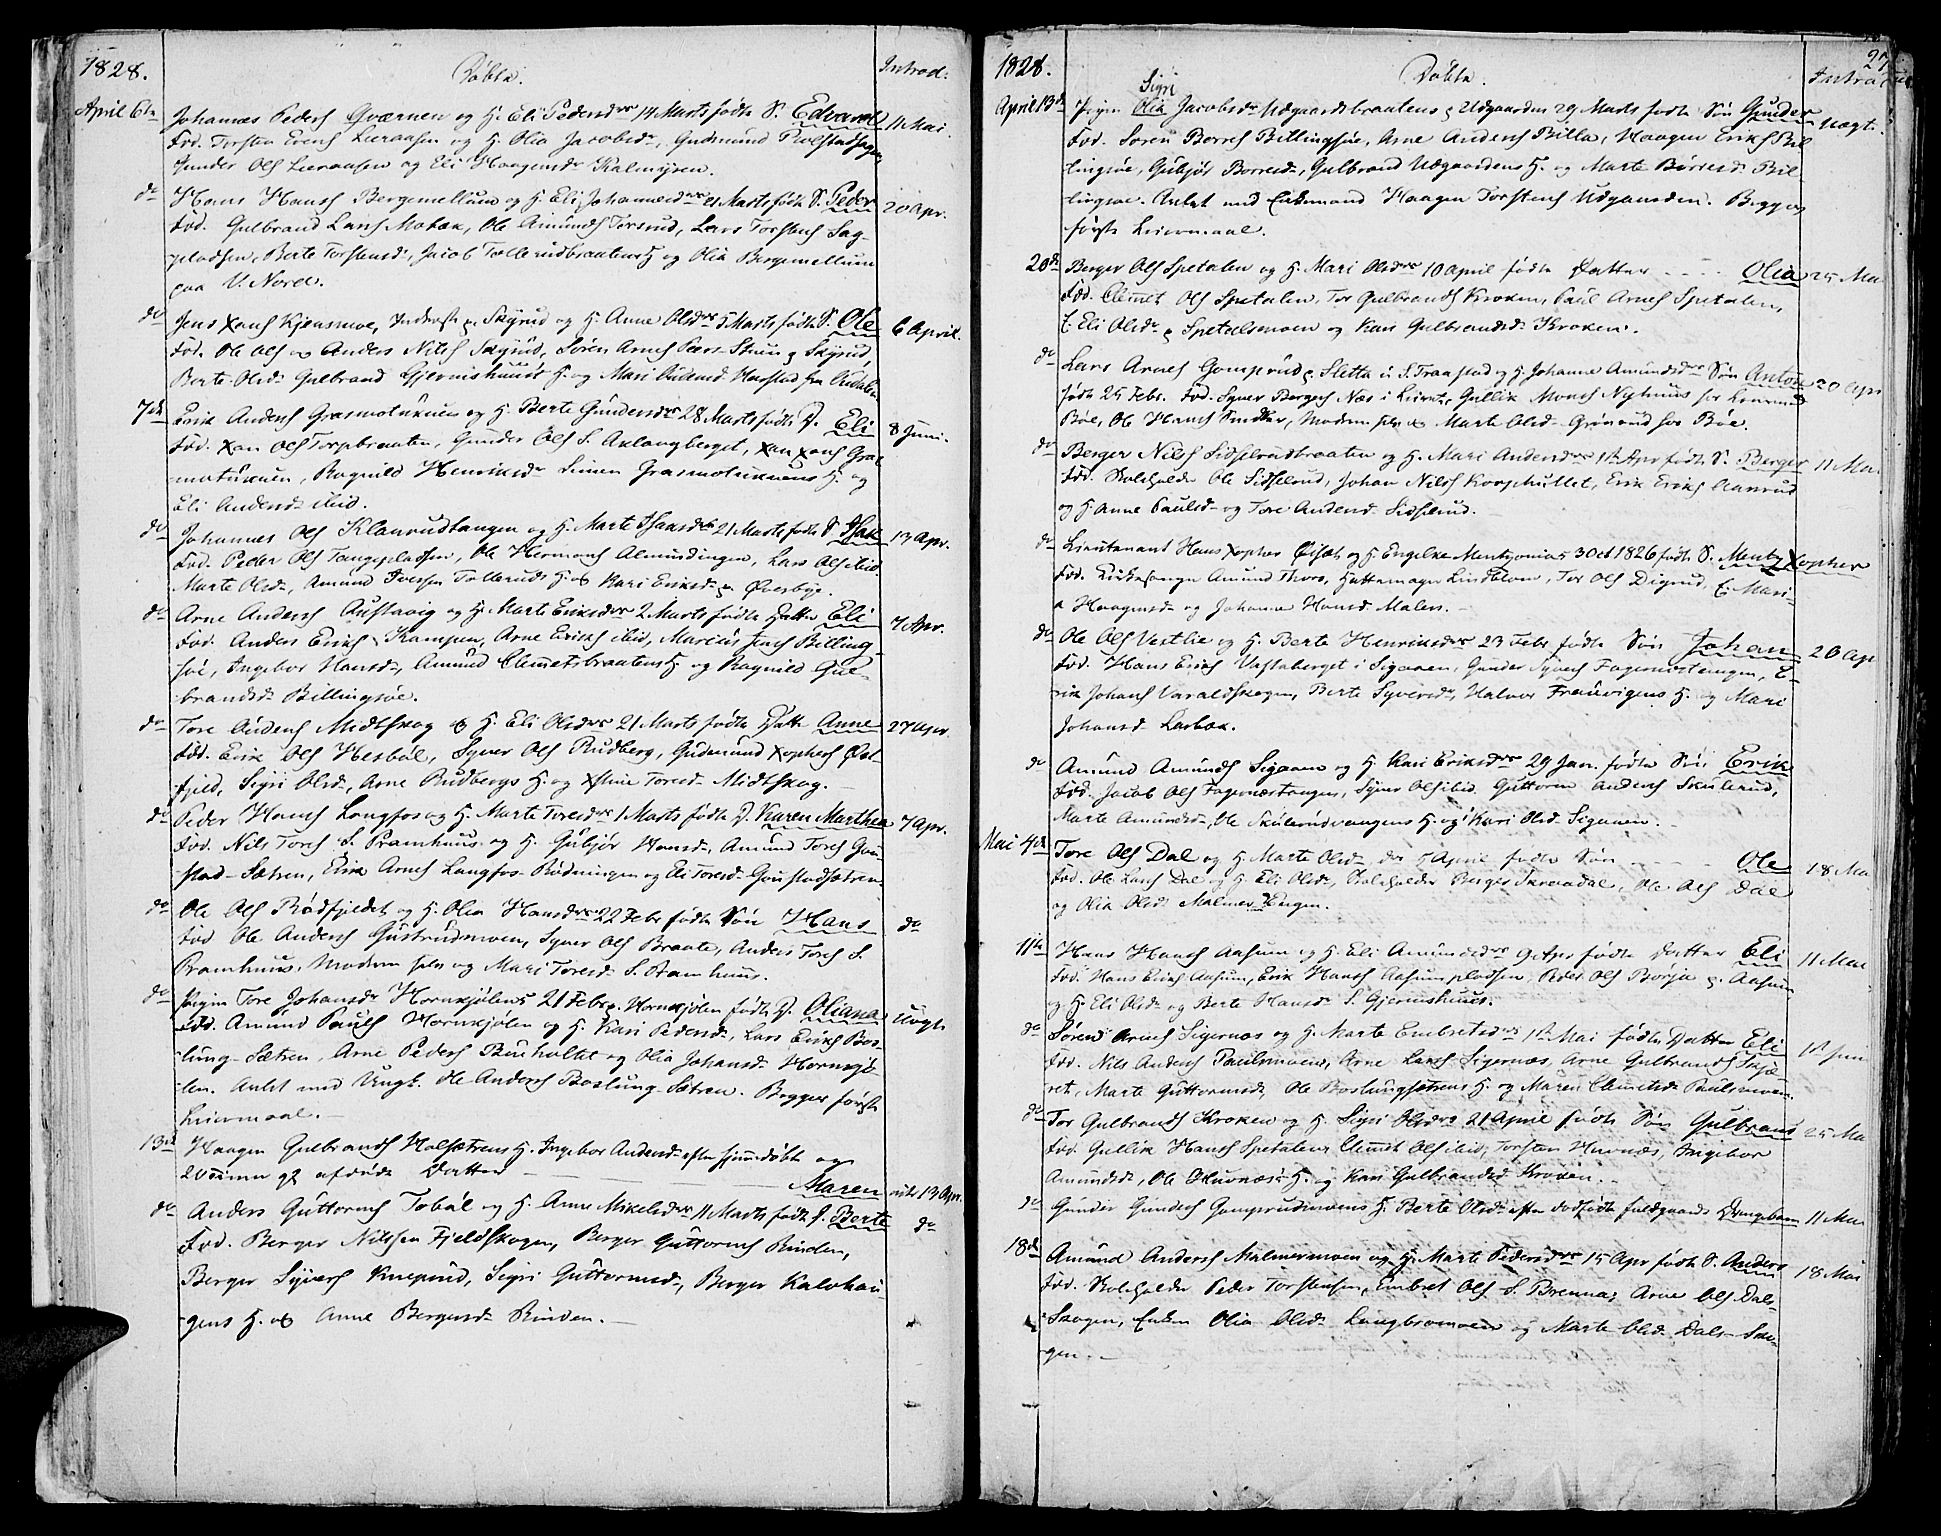 1828.
Döbte.
Introd:
April 6te Johannes Peders Qværnen og H. Eli Pedersdr 14 Marts födte S. Edvard 11 Mai.
Fad. Torsten Evens Lieraasen og H. Olia Jacobsdr, Gudmund Rolstadhagen
Gunder Ols Lieraasen og Eli Haagensdr Kalmyren.
do Hans Hansf Bergemellum og H. Eli Johannesdr 21 Marts födte S. Peder 20 Apr.
Fad. Gulbrand Lars Mobæk, Ole Amunds Torsrud, Lars Torstens Sag-
pladsen, Berte Torstensdr, Jacob Tollerudbraatens H og Olia Bergemellum
paa V. Noree.
do Jens Xans Kjensmoe, Inderst p. Skyrud og H. Anne Olsdr 5 Marts födte S. Ole 6 April.
Fad. Ole Ols og Anders Nils Skyrud, Sören Arnes Stuen p Skyrud,
Berte Olsdr Gulbrand Gjermshuus H. og Mari Harstad fra
7de Erik Anders Grasmotukuen og H. Berte Gundersdr 28 Marts födte D. Eli 8 Juni.
Fad. Xan Ols Torpbraaten, Gunder Ols S. Aslangberget, Xan Xans Gras
motukuen, Ragnild Henriksdr Simen Grasmotukuens H. og
Eli Andersdr ibid.
do Johannes Ols Klanrudtangen og H. Marte Isaaksdr 21 Marts födte S. Isak 13 Apr.
Fad. Peder Ols Tangepladsen, Ole Hermans Almindingen, Lars Ols ibid
Marte Olsdr, Amund Iversen Tolleruds H. og Kari Eriksdr p. Överbye.
do Arne Anders Austavig og H. Marte Eriksdr 2 Marts födte Datter Eli 7 Apr.
Fad. Anders Eriks Kampen, Arne Eriks ibid, Marcus Jens Billing-
söe, Ingebor Hansdr, Amund Clemetsbraatens H. og Ragnild Gul-
brandsdr Billingsöe.
do Tore Audens Midtskog og H. Eli Olsdr 21 Marts födte Datt. Anne 27 Apr.
Fad. Erik Ols Hesböl, Syver Ols Rudberg, Gudmund Xophers Öst-
fjeld, Sigri Olsdr, Arne Rudbergs H. og Xstine Toresdr Midtskog.
do Peder Hans Langfos og H. Marte Toresdr 1 Marts födte D. Karen Marthea 7 Apr.
Fad. Nils Tores S. Bramhuus og H. Gubjör Hansdr, Amund Tores Gou-
stad-Sætren, Erik Arnes Langfos-Rödningen og Eli Toresdr Goustadsætren.
do Ole Ols Rödfjeldet og H. Olia Hansdr 22 Febr födte Sön Hans do
Fad Ole Anders Gustrudmoen, Syver Ols Braate, Anders Tores S.
Bramhuus, Modren selv og Mari Toresdr S. Bramhuus.
do Pigen Tore Johansdr Hornkjölens 21 Febr p. Hornkjölen födte D. Oliana Uægte
Fad. Amund Pauls Hornkjölen og H. Kari Pedersdr, Lars Eriks Bos-
lung-Sætren, Arne Peders Buholtet og Olia Johansdr Hornkjö-
len. Anlet med Ungk. Ole Anders Boslung Sætren. Begges förste
Leiermaal.
13de Haagen Gulbrands Holsætrens H. Ingebor Andersdr efter hjemdöbte og
2 Timer gl afdöde Datter Maren 13 Apr.
do Anders Guttorms Toböl og H. Anne Mikelsdr 11 Marts födte D. Berte do
Fad. Berger Nilssen Fjeldskogen, Berger Guttorms Rinden,
Berger Syvers Kneprud, Sigri Guttormsdr, Berger Kalvhau
gens H. og Anne Bergersdr Rinden.
1828.
Döbte.
Introd
27
Sigri
April 13de Pigen Olia Jacobsdr Udgaardsbraatens p Udgaarden 29 Marts födte Sön Gunder Uægte.
Fad. Sören Borres Billingsöe, Arne Anders Billa, Haagen Eriks Bil
lingsöe, Gubjör Borresdr, Gulbrand Udgaardens H. og Marte Börresdr Bil-
lingsöe. Anlet med Enkemand Haagen Torstens Udgaarden. Begges
förste Leiermaal.
20de Berger Ols Spetalen og H. Mari Olsdr 10 April födte Datter Olia 25 Mai
Fad. Clemet Ols Spetalen, Tor Gulbrands Kroken, Paul Arnes Spetalen,
E. Eli Olsdr p Spetalsmoen og Kari Gulbrandsdr Kroken.
do Lars Arnes Gomsrud p. Sletta i S. Traastad og H. Johanne Amundsdr Sön Anton 20 Apr
födte 25 Febr. Fad. Syver Bergers Nos i Leiret, Gullik Mons Nyhuus for
Böe, Ole Hans Smither, Modren selv og Marte Olsdr Grönoud for Böe.
do Berger Nils Sidselrudbraaten og H. Mari Andersdr 1ste Apr födte S. Berger 11 Mai
Fad. Skoleholder Ole Sidselrud, Johan Nils Korpehullet, Erik Eriks Aanrud
og H. Anne Paulsdr og Tore Andersdr Sidselrud.
do Lieutenant Hans Xopher Öiset og H. Engelke Mentzonia 30 Oct 1826 födte S. Mentz Xopher
Fad. Kirkesanger Amund Thors, Hattemager Lindblom, Tor Ols Digrud, E. Mari-
a Haagensdr og Johanne Hansdr Malen.
do Ole Ols Vestlie og H. Berte Henriksdr 23 Febr födte Sön Johan 20 Ap
Fad. Hans Eriks Vestaberget i Sigaaen, Gunder Syvers Fagernæstangen, E-
rik Johans Varaldskogen, Berte Syversdr, Halvor Frauvigens H. og Mari
Johansdr Larbæk.
do Amund Amunds Sigaaen og H. Kari Eriksdr 29 Jan. födte Sön Erik
Fad. Jacob Ols Fagernæstangen, Syver Ols ibid, Guttorm Anders Skulerud,
Marte Amundsdr, Ole Skulerudvangens H. og Kari Olsdr Sigaaen.
Mai 4de Tore Ols Dal og H. Marte Olsdr 5 April födte Sön Ole 18 Mai
Fad. Ole Lars Dal og H. Eli Olsdr, Skoleholder Berger Skrevadal, Ole Ols Dal
og Olia Olsdr Malmer Hougen.
11te Hans Hans Aasum og H. Eli Amundsdr 9 Apr födte Datter Eli 11 Mai
Fad. Hans Eriks Aasum, Erik Hans Aasumpladsen, Peder Ols Borja p. Aasum
og H. Eli Olsdr og Berte Hansdr S. Gjermshuus.
do Sören Arnes Sigernæs og H. Marte Embretsdr 1ste Mai födte Datter Eli 1ste Juni
Fad. Nils Anders Paulsmoen, Arne Lars Sigernæs, Arne Gulbrands Skjæ-
ret, Marte Guttormsdr, Ole Boslungsætrens H. og Maren Clemetsdr Paulsmoen.
do Tor Gulbrands Kroken og H. Sigri Olsdr 21 April födte Sön Gulbrand 25 Mai
Fad. Gullik Hans Spetalen, Clemet Ols ibid, Torsten Huvnæs, Ingebor
Amundsdr, Ole Huvnæs H. og Kari Gulbrandsdr Kroken.
do Gunder Gunders Gomsrudmoens H. Berte Olsdr efter dödfödt fuldgaaende Drengebarn 11 Mai
18de Amund Anders Malmermoen og H. Marte Pedersdr 15 Apr födte S. Anders 18 Mai
Fad. Skoleholder Peder Torstensen, Embret Ols S. Brenna, Arne Ols Dals-
Skogen, Enken Olia Olsdr Langbromoen og Marte Olsdr Dals-Sko-
gen.